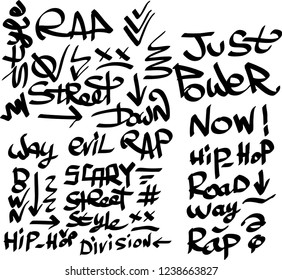 Style
RAP
xx
Street
Down
Way evil RAP
B
W
N
SCARY
Street #
Style xx
HiP-HoP
Division
Just
PoWER
NoW!
HiP-HoP
RoaD
Way
Rap
shutterstock.com · 1238663827